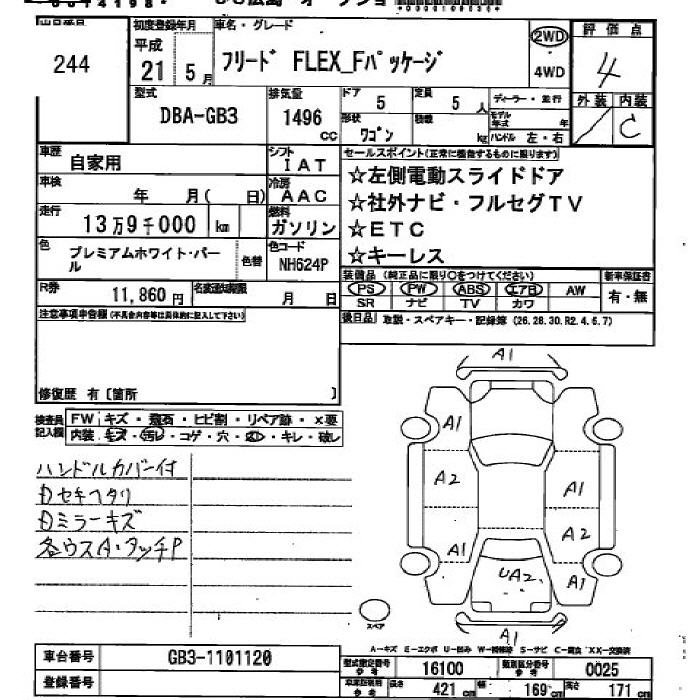 初度登録年月 車名・グレード 評価点
244 平成 21 5月 フリード FLEX_Fパッケージ 2WD 4WD 4
型式 DBA-GB3 排気量 1496 CC ドア 5 定員 5人 ディーラー・並行 外装 内装
形状 ワゴン 積載 kg モデル年式 年 ハンドル 左・右 C
車歴 自家用 シフト IAT セールスポイント(正常に機能するものに限ります)
車検 年 月( 日) 冷房 AAC ☆左側電動スライドドア
走行 13万9千000 km 燃料 ガソリン ☆社外ナビ・フルセグTV
☆ETC
色 プレミアムホワイト・パール 色替 色コード NH624P ☆キーレス
装備品(純正品に限り○をつけてください) 新車保証書
R券 11,860円 名変通知期限 月 日 PS PW ABS エアB AW 有・無
SR ナビ TV カワ
注意事項申告欄(不具合内容等は具体的に記入して下さい) 後日品 取説・スペアキー・記録簿(26.28.30.R2.4.6.7)
修復歴 有〔箇所 〕
検査員記入欄 FW キズ・飛石・ヒビ割・リペア跡・X要
内装 キズ・汚レ・コゲ・穴・凹・キレ・破レ
ハンドルカバー付
内セキヘタリ
内ミラーキズ
各ウスA・タッチP
A1
A1
A2 A1
A2
A1 A1
UA2
A1
スペア
A-キズ E-エクボ U-凹み W-補修跡 S-サビ C-腐食 XX-交換済
車台番号 GB3-1101120 型式指定番号 参考 16100 類別区分番号 参考 0025
登録番号 車庫証明用 参考 長さ 421 cm 幅 169 cm 高さ 171 cm